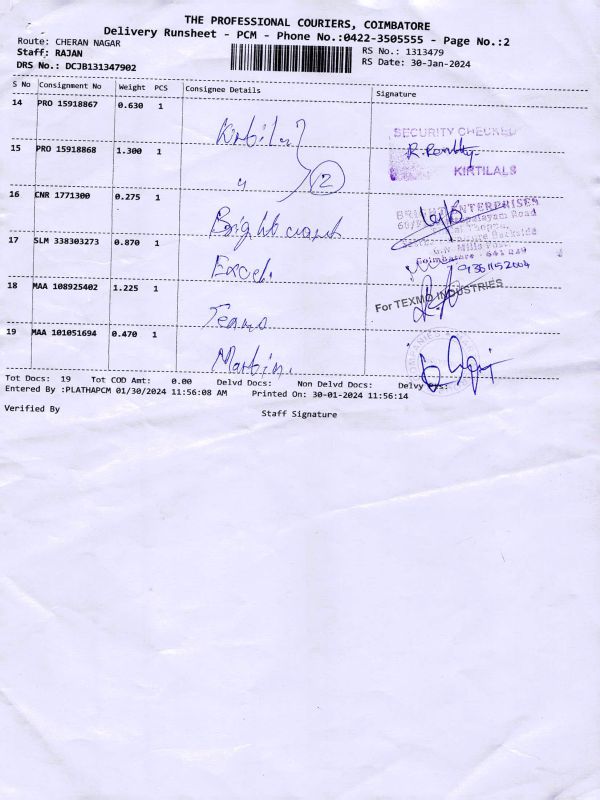 THE PROFESSIONAL COURIERS, COIMBATORE
Delivery Runsheet - PCM - Phone No.:0422-3505555 - Page No.:2
Route: CHERAN NAGAR
RS No.: 1313479
Staff: RAJAN
RS Date: 30-Jan-2024
DRS No.: DCJB131347902
S No Consignment No Weight PCS Consignee Details Signature
14 PRO 15918867 0.630 1
SECURITY CHECKED
15 PRO 15918868 1.300 1 (2)
KIRTILALS
16 CNR 1771300 0.275 1
BRIGHT ENTERPRISES
17 SLM 338303273 0.870 1 Excel.
Coimbatore - 641 029
18 MAA 108925402 1.225 1 Teams
For TEXMO INDUSTRIES
19 MAA 101051694 0.470 1 Martin.
Tot Docs: 19 Tot COD Amt: 0.00 Delvd Docs: Non Delvd Docs: Delvy
Entered By :PLATHAPCM 01/30/2024 11:56:08 AM Printed On: 30-01-2024 11:56:14
Verified By
Staff Signature